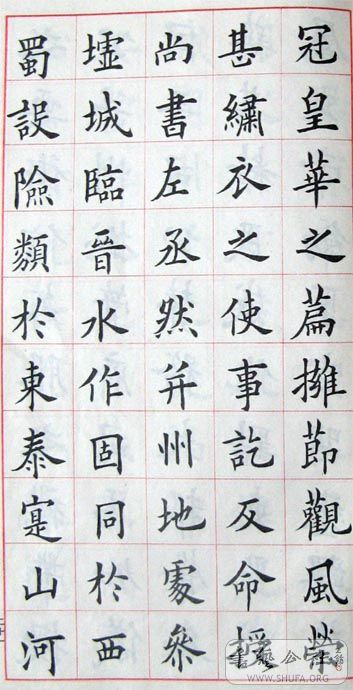 冠皇華之篇擁節觀風榮
甚繡衣之使事訖反命授
尚書左丞然并州地處參
墟城臨晉水作固同於西
蜀設險類於東秦寔山河
WWW.SHUFA.ORG